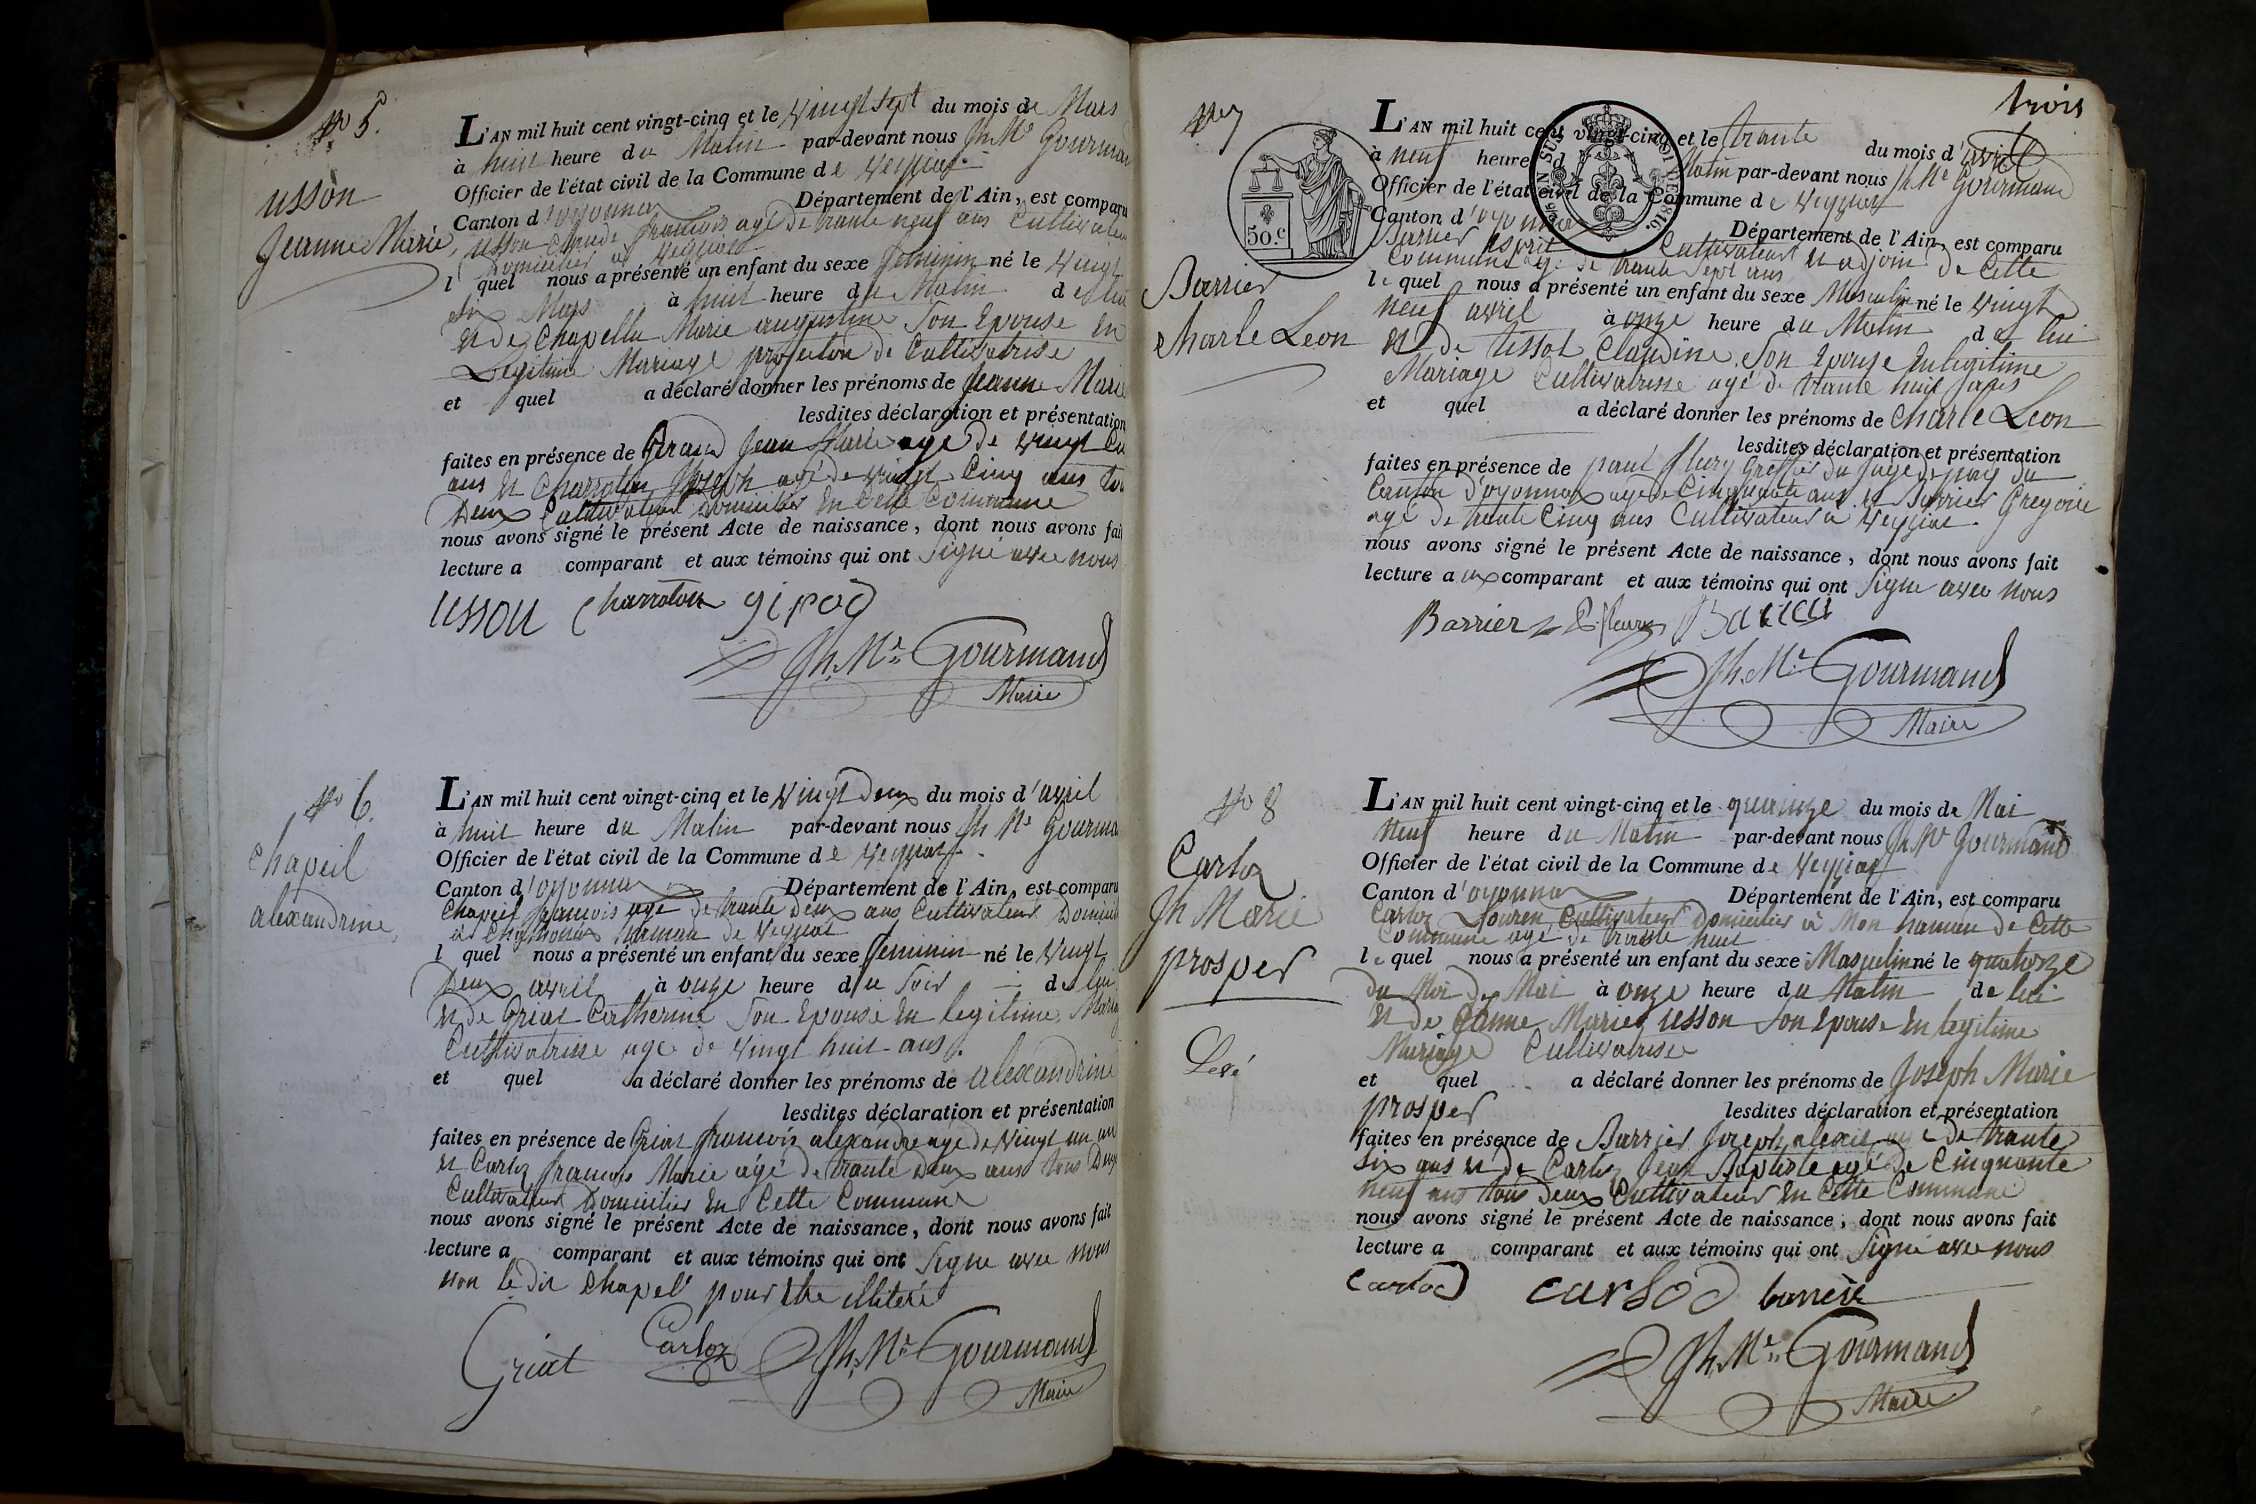 No 5.
usson
Jeanne Marie
L'AN mil huit cent vingt-cinq et le vingt sept du mois de Mars
à huit heure du Matin par-devant nous Jh. Me. Gourmand
Officier de l'état civil de la Commune de Veyziat
Canton d'oyonnax Département de l'Ain, est comparu
usson Claude françois agé de trante neuf ans Cultivateur
Domicilier a Veyziat
l quel nous a présenté un enfant du sexe feminin né le vingt
six Mars à huit heure du Matin de lui
et de Chapellu Marie augustine Son Epouse en
Legitime Mariage profesion de Cultivatrise
et quel a déclaré donner les prénoms de Jeanne Marie
lesdites déclaration et présentation
faites en présence de Jean Marie agé de vingt
ans et Charroton Joseph agé de vingt Cinq ans tous
Deux Cultivateur Domicilier en Cette Commune
nous avons signé le présent Acte de naissance, dont nous avons fait
lecture a comparant et aux témoins qui ont Signé avec nous
usson Charroton girod
Jh. Me. Gourmand
Maire
No 6.
Chapeil
alexandrine,
L'AN mil huit cent vingt-cinq et le vingt Deux du mois d'avril
à huit heure du Matin par-devant nous Jh Me Gourmand
Officier de l'état civil de la Commune de Veyziat
Canton d'oyonnax Département de l'Ain, est comparu
Chapeil françois agé de trante Deux ans Cultivateur Domicilier
a hamau de Veyziat
l quel nous a présenté un enfant du sexe feminin né le Vingt
Deux avril à onze heure du Soir de lui
et de Griat Catherine Son Epouse en legitime Mariage
Cultivatrise agé de vingt huit ans.
et quel a déclaré donner les prénoms de alexandrine
lesdites déclaration et présentation
faites en présence de Griat françois alexandre agé de Vingt un an
et Carloz françois Marie agé de trante Deux ans tous Deux
Cultivateur Domicilier en Cette Commune
nous avons signé le présent Acte de naissance, dont nous avons fait
lecture a comparant et aux témoins qui ont Signe avec nous
non le dit Chapel pour etre illiteré
Griat Carloz Jh. Me. Gourmand
Maire
trois
No 7
50.c
Barrier
Charle Leon
L'AN mil huit cent vingt-cinq et le trante du mois d'avril
à neuf heure du Matin par-devant nous Jh Me Gourmand
Officier de l'état civil de la Commune de Veyziat
Canton d'oyonnax Département de l'Ain, est comparu
Barrier Esprit Cultivateur et adjoin de Cette
Commune agé de trante Sept ans
le quel nous a présenté un enfant du sexe Masculin né le vingt
neuf avril à onze heure du Matin de lui
et de tissot Claudine Son Epouse en legitime
Mariage Cultivatrise agé de trante huit
et quel a déclaré donner les prénoms de Charle Leon
lesdites déclaration et présentation
faites en présence de paul fleury Greffier du Juge de paix du
Canton d'oyonnax agé de Cinquante ans et Barrier Gregoire
agé de trante Cinq ans Cultivateur a Veyziat.
nous avons signé le présent Acte de naissance, dont nous avons fait
lecture a ux comparant et aux témoins qui ont Signe avec nous
Barrier P. fleury Barrier
Jh. Me. Gourmand
Maire
No 8
Carloz
Jh Marie
prosper
L'AN mil huit cent vingt-cinq et le quinze du mois de Mai
neuf heure du Matin par-devant nous Jh Me Gourmand
Officier de l'état civil de la Commune de Veyziat
Canton d'oyonnax Département de l'Ain, est comparu
Carloz Louren Cultivateur Domicilier a Mon hamau de Cette
Commune agé de trante huit
le quel nous a présenté un enfant du sexe Masculin né le quatorze
du Moi de Mai à onze heure du Matin de lui
et de Jeanne Marie usson Son Epouse en legitime
Mariage Cultivatrise
et quel a déclaré donner les prénoms de Joseph Marie
prosper lesdites déclaration et présentation
faites en présence de Barrier Joseph alexis agé de trante
Six ans et de Carloz Jean Baptiste agé de Cinquante
neuf ans tous deux Cultivateur en Cette Commune
nous avons signé le présent Acte de naissance, dont nous avons fait
lecture a comparant et aux témoins qui ont Signé avec nous
Jh. Me. Gourmand
Maire